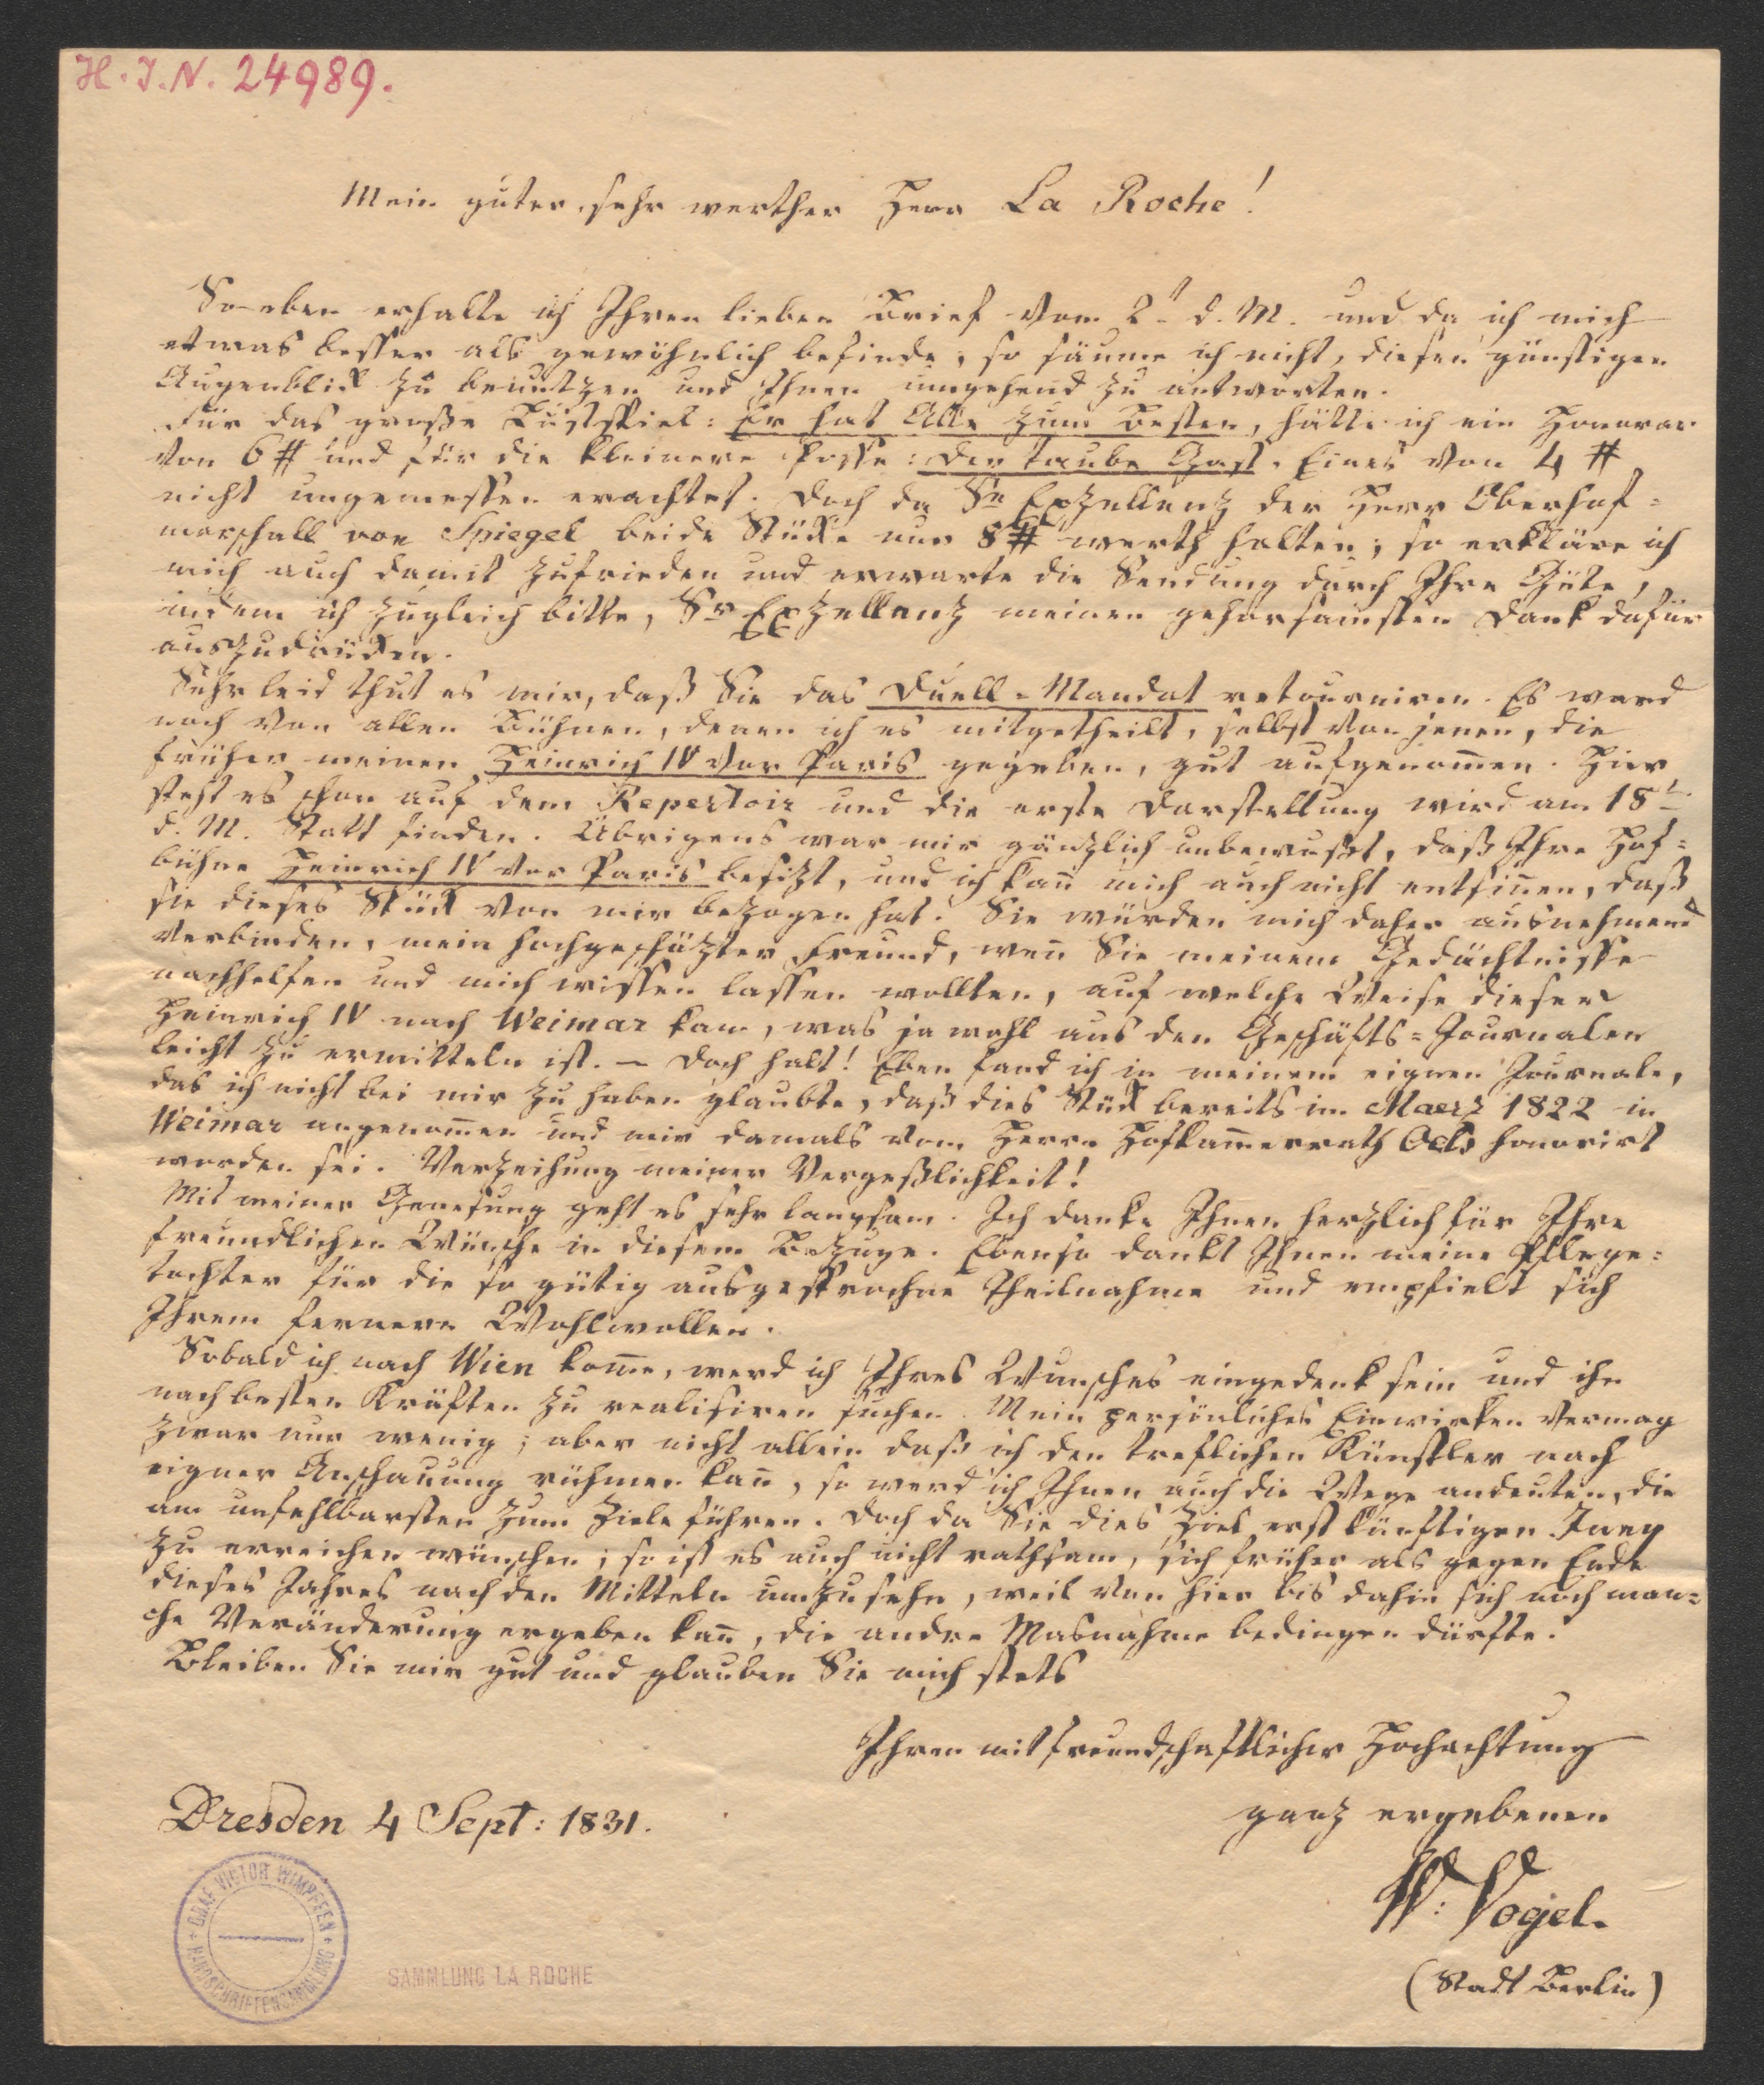 H. I. N. 24989.
Mein guter, sehr werther Herr La Roche!
So eben erhalte ich Ihren lieben Brief vom 2t d. M. und da ich mich
etwas besser als gewöhnlich befinde, so säume ich nicht, diesen günstigen
Augenblick zu benutzen und Ihnen umgehend zu antworten.
Für das große Lustspiel: Er hat Alle zum Besten, hätte ich ein Honorar
von 6 # und für die kleinere Posse: Der taube Gast, Eines von 4 #
nicht ungemessen erachtet. Doch da Se Exzellenz der Herr Oberhof=
marschall von Spiegel beide Stücke nur 8 # werth halten; so erkläre ich
mich auch damit zufrieden und erwarte die Sendung durch Ihre Güte,
indem ich zugleich bitte, Sr Exzellenz meinen gehorsamsten Dank dafür
auszudrücken.
Sehr leid thut es mir, daß Sie das Duell-Mandat retourniren. Es ward
noch von allen Bühnen, denen ich es mitgetheilt, selbst von jenen, die
früher meinen Heinrich IV vor Paris gegeben, gut aufgenom̄en. Hier
steht es schon auf dem Repertoir und die erste Darstellung wird am 18t
d. M. Statt finden. Übrigens war mir gänzlich unbewußt, daß Ihre Hof=
bühne Heinrich IV vor Paris besizt, und ich kan̄ mich auch nicht entsin̄en, daß
sie dieses Stück von mir bezogen hat. Sie würden mich daher ausnehmend
verbinden, mein hochgeschäzter Freund, wen̄ Sie meinem Gedächtnisse
nachhelfen und mich wissen lassen wollten, auf welche Weise dieser
Heinrich IV nach Weimar kam, was ja wohl aus den Geschäfts=Journalen
leicht zu ermitteln ist. — Doch halt! Eben fand ich in meinem eignen Journale,
das ich nicht bei mir zu haben glaubte, daß dies Stück bereits im Maerz 1822 in
Weimar angenom̄en und mir damals vom Herrn Hofkam̄errath honorirt
worden sei. Verzeihung meiner Vergeßlichkeit!
Mit meiner Genesung geht es sehr langsam. Ich danke Ihnen herzlich für Ihre
freundlichen Wünsche in diesem Bezuge. Ebenso dankt Ihnen meine Pflege=
tochter für die so gütig ausgesprochne Theilnahme und empfielt sich
Ihrem fernern Wohlwollen.
Sobald ich nach Wien kom̄e, werd ich Ihres Wunsches eingedenk sein und ihn
nach besten Kräften zu realisiren suchen. Mein persönliches Einwirken vermag
zwar nur wenig; aber nicht allein daß ich den treflichen Künstler nach
eigner Anschauung rühmen kan̄, so werd ich Ihnen auch die Wege andeuten, die
am unfehlbarsten zum Ziele führen. Doch da Sie dies Ziel erst künftigen Juny
zu erreichen wünschen; so ist es auch nicht rathsam, sich früher als gegen Ende
dieses Jahres nach den Mitteln umzusehn, weil von hier bis dahin sich noch man=
che Veränderung ergeben kan̄, die andre Masnahme bedingen dürfte.
Bleiben Sie mir gut und glauben Sie mich stets
Ihren mit freundschaftlicher Hochachtung
ganz ergebenen
Dresden 4 Sept: 1831.
W. Vogel.
(Stadt Berlin)
GRAF VICTOR WIMPFFEN
HANDSCHRIFTENSAMMLUNG
SAMMLUNG LA ROCHE